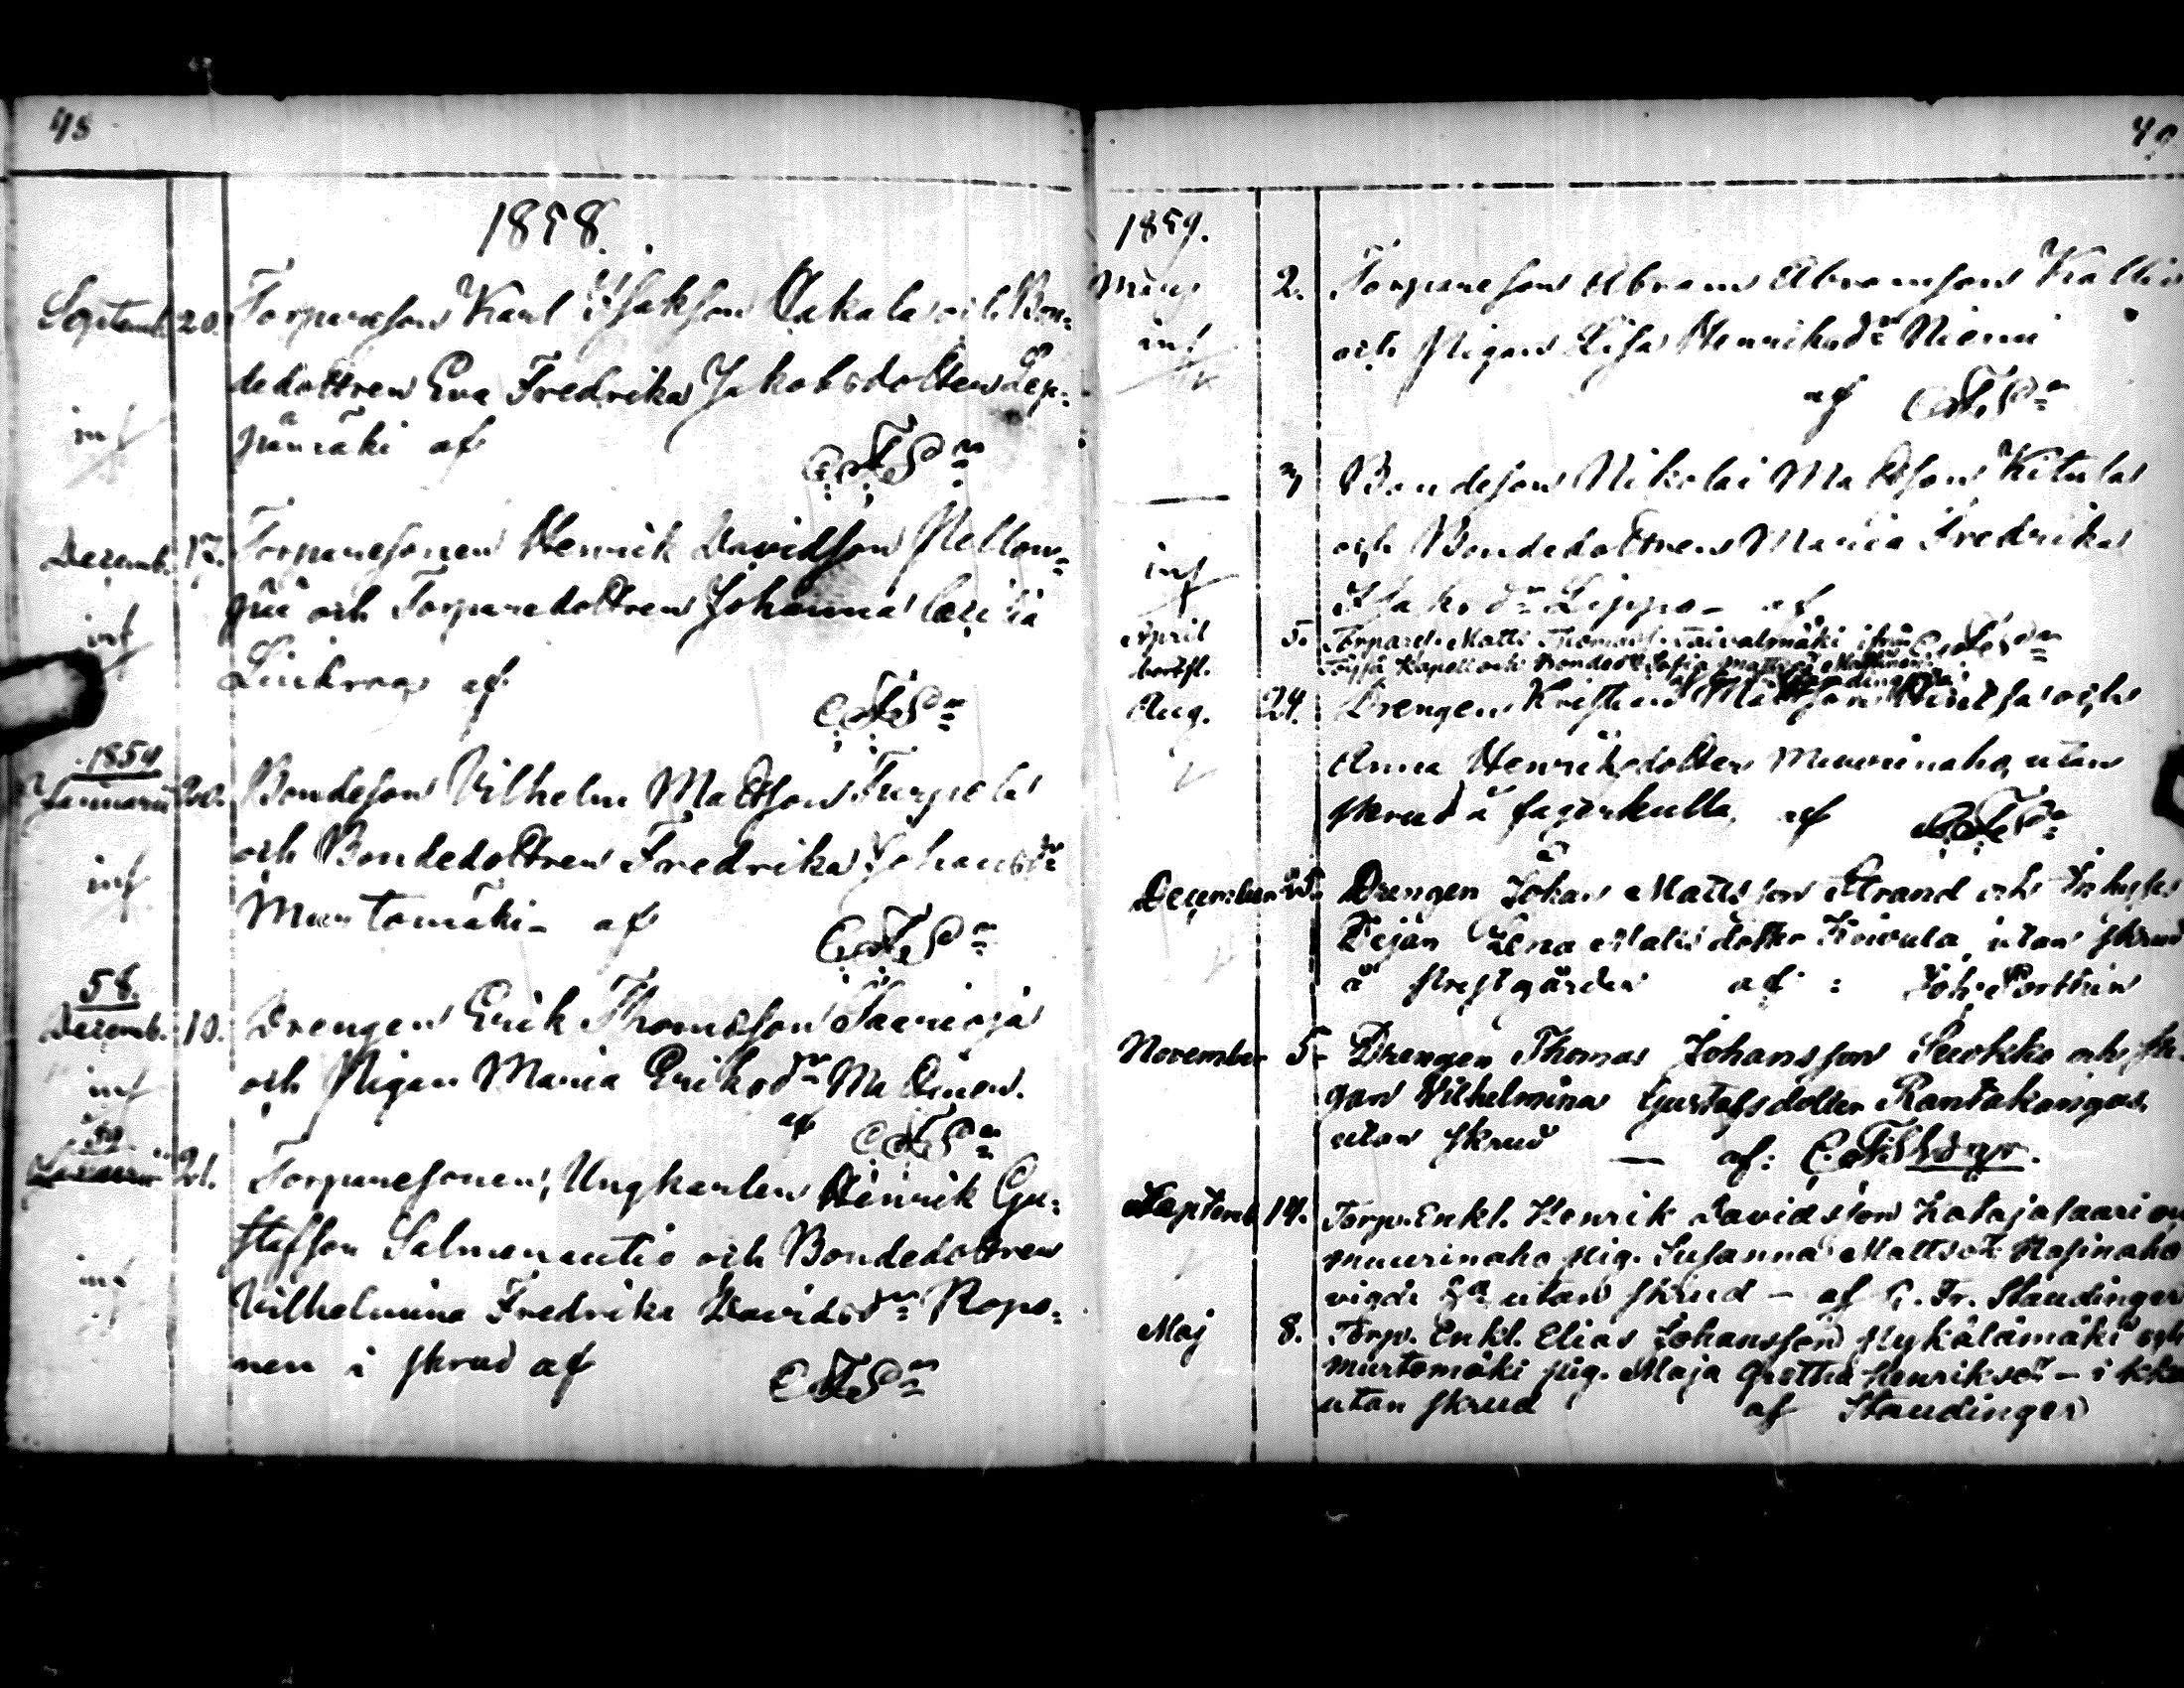 48
1858.
Septemb. 20. Torpareson Karl Isakson Aakala och Bon-
dedottren Eva Fredrika Jakobsdotter Lep-
inf pämäki af
Decemb. 17. Torparesonen Henrik Davidson Pellon-
pää och Torparedottren Johanna
inf
Linkroos af
1859
Januarii 20. Bondeson Vilhelm Mattson Turpela
och Bondedottren Fredrika Johansdr
inf
Murtomäki - af
58.
Decemb. 10. Drengen Erik Thomsson Saarioja
och Pigan Maria Eriksdr Mattinen.
inf
af
59
Januarii 21. Torparesonen, Ungkarlen Henrik Gu-
stafson Salmenautio och Bondedottren
inf Vilhelmina Fredrika Davidsdr Ropo-
nen i skrud af
49
1859.
2. Torpareson Abram Abramson Kallio
inf och Pigan Lisa Henriksdr Niemi
af
3 Bondeson Nikolai Mattson Kitula
och Bondedottren Maria Fredrika
inf
Isaksdr Leppo - af
April 5. Torpares. Matts Thomass. Taivalmäki ifrån
Töysä Kapell och Bonded. Sofia Mattsdr Mattinen
Aug. 24. Drengen Kristian Mattson och
Anna Henriksdotter Muurinaho, utan
skrud å fagerkulla, af
December 25. Drengen Johan Mattsson Strand och Inhyses
Pejan Lena Matts dotter Koivula utan skrud
å prestgården af: Joh. Porthin
November 5 Drengen Thomas Johansson Seikko och Pi-
gan Vilhelmina Gustafsdotter Rantakangas,
utan skrud — af:
Septemb 14. Torp. Enkl. Henrik Davidsson Katajasaari och
muurinaho pig. Susanna Mattsdr Hosinaho
vigde utan skrud - af C. Fr. Staudinger
Maj 8. Torp. Enkl. Elias Johansson Pykälämäki och
murtomäki pig. Maja Gretha Henriksdr - i
utan skrud af Staudinger